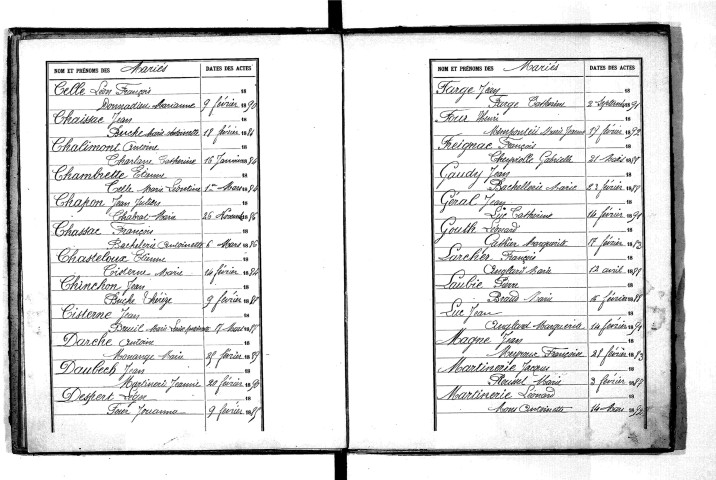 NOM ET PRÉNOMS DES Mariés DATES DES ACTES
Celle Léon François 18
Donnadieu Marianne 9 février 1890
Chaissac Jean 18
Buche Marie Antoinette 18 février 1884
Chalimont Antoine 18
Charlane Catherine 16 Janvier 1884
Chambrette Etienne 18
Celle Marie Léontine 1er Mars 1886
Chapon Jean 18
Chabrat Marie 26 Novembre 1886
Chassac François 18
Bachelerie Antoinette 6 Mars 1886
Chasteloux Etienne 18
Cisterne Marie 14 février 1886
Chinchon Jean 18
Buche 9 février 1888
Cisterne Jean 18
Breuil Marie 17 Mars 18
Darche Antoine 18
Monange Marie 25 février 1889
Daubech Jean 18
Martinerie Jeanne 20 février 1890
Despert Léger 18
Four Jouanna 9 février 1885
NOM ET PRÉNOMS DES Mariés DATES DES ACTES
Farge Jean 18
Farge Catherine 2 Septembre 1891
Four Henri 18
Monponteil Marie Jeanne 17 février 1892
Freignac François 18
Cheyriolle Gabrielle 21 Mars 1888
Gaudy Jean 18
Bachellerie Marie 23 février 1889
Géral Jean 18
Luc Catherine 14 février 1891
Gouth Léonard 18
Marguerite 17 février 1883
Lurcher François 18
Anglard Marie 12 avril 1888
Laubie Pierre 18
Braud Marie 15 février 1888
Luc Jean 18
Anglard Marguerite 14 février 1891
Magne Jean 18
Françoise 21 février 1883
Martinerie Jacques 18
Roussel Marie 3 février 1885
Martinerie Léonard 18
Mons Antoinette 14 Mars 189